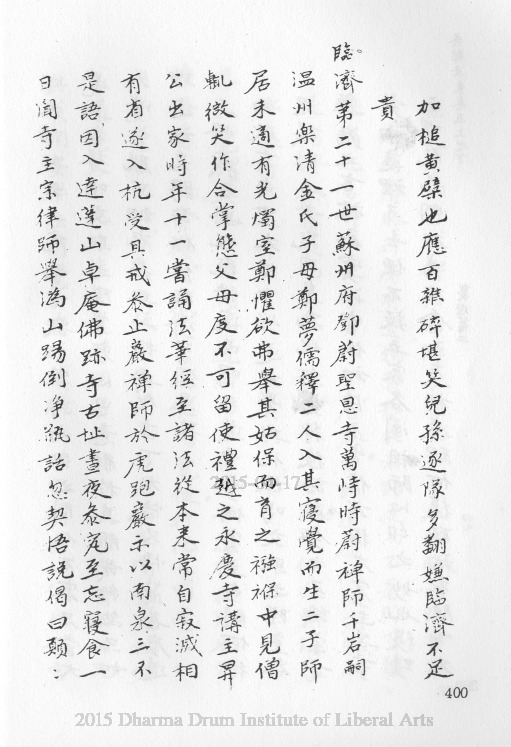 加槌黃檗也應百雜碎堪笑兒孫逐隊多翻嫌臨濟不足
貴
臨濟第二十一世蘇州府鄧蔚聖恩寺萬峙時蔚禪師千岩嗣
温州樂清金氏子母鄭夢儒釋二人入其寢覺而生二子師
居未適有光燭室鄭懼欲弗舉其姑保而育之襁褓中見僧
輒微笑作合掌態父母度不可留使禮越之永慶寺講主昇
公出家時年十一嘗誦法華經至諸法從本來常自寂滅相
有省遂入杭受具戒叅止巖禪師於虎跑巖示以南泉三不
是語因入達蓬山卓庵佛跡寺古址晝夜叅究至忘寢食一
日聞寺主宗律師舉溈山踢倒淨瓶話忽契悟説偈曰顛:
400
2015 Dharma Drum Institute of Liberal Arts